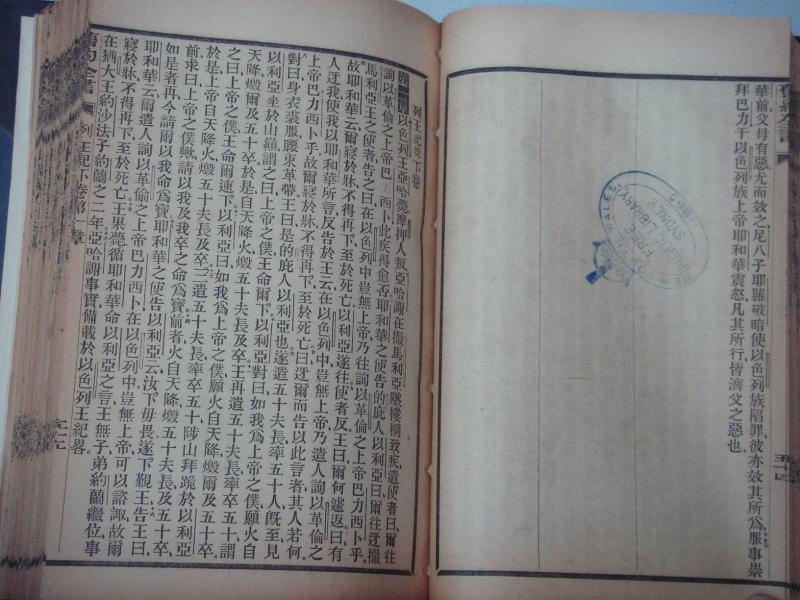 華前父母有惡尤而效之足八子耶羅破暗使以色列族陷罪彼亦效其所爲服事崇
拜巴力于以色列族上帝耶和華震怒凡其所行皆濟父之惡也
FREE
SYDNEY
列王紀畧下卷
第一章 以色列王亞哈薨摩押人叛亞哈謝在撒馬利亞墜樓欄致疾遣使者曰爾往
詢以革倫之上帝巴力西卜此疾得愈否耶和華之使告的庇人以利亞曰爾往迓撒
馬利亞王之使者告之曰在以色列中豈無上帝乃往詢以革倫之上帝巴力西卜乎
故耶和華云爾寢於牀不得再下至於死亡以利亞遂往使者反王曰爾何遽返曰有
人迓我使我以耶和華所言反告於王云在以色列中豈無上帝乃遣人詢以革倫之
上帝巴力西卜乎故爾寢於牀不得再下至於死亡曰迓爾而告以此言者其人若何
對曰身衣裘服腰束革帶王曰是的庇人以利亞也遂遣五十夫長及五十人旣至見
以利亞坐於山巔謂之曰上帝之僕王命爾下以利亞對曰如我爲上帝之僕願火自
天降燬爾及五十卒於是火自天降燬五十夫長及卒王再遣五十夫長率卒五十謂
之曰上帝之僕王命爾速下以利亞曰如我爲上帝之僕願火自天降燬爾及五十卒
於是上帝自天降火燬五十夫長及卒三遣五十夫長率卒五十陟山拜跪於以利亞
前求曰上帝之僕歟請以我及我卒之命爲寶前者火自天降燬五十夫長及五十卒
如是者再今請爾以我命爲寶耶和華之使告以利亞云汝下毋畏遂下覲王告王曰
耶和華云爾遣人詢以革倫之上帝巴力西卜豈以色列中豈無上帝可以諮諏故爾
寢於牀不得再下至於死亡王果薨循耶和華命以利亞之言王無子弟約蘭繼位事
在猶大王約沙法子約蘭之二年亞哈謝事實備載於以色列王紀畧
舊約全書 列王紀下卷第一章